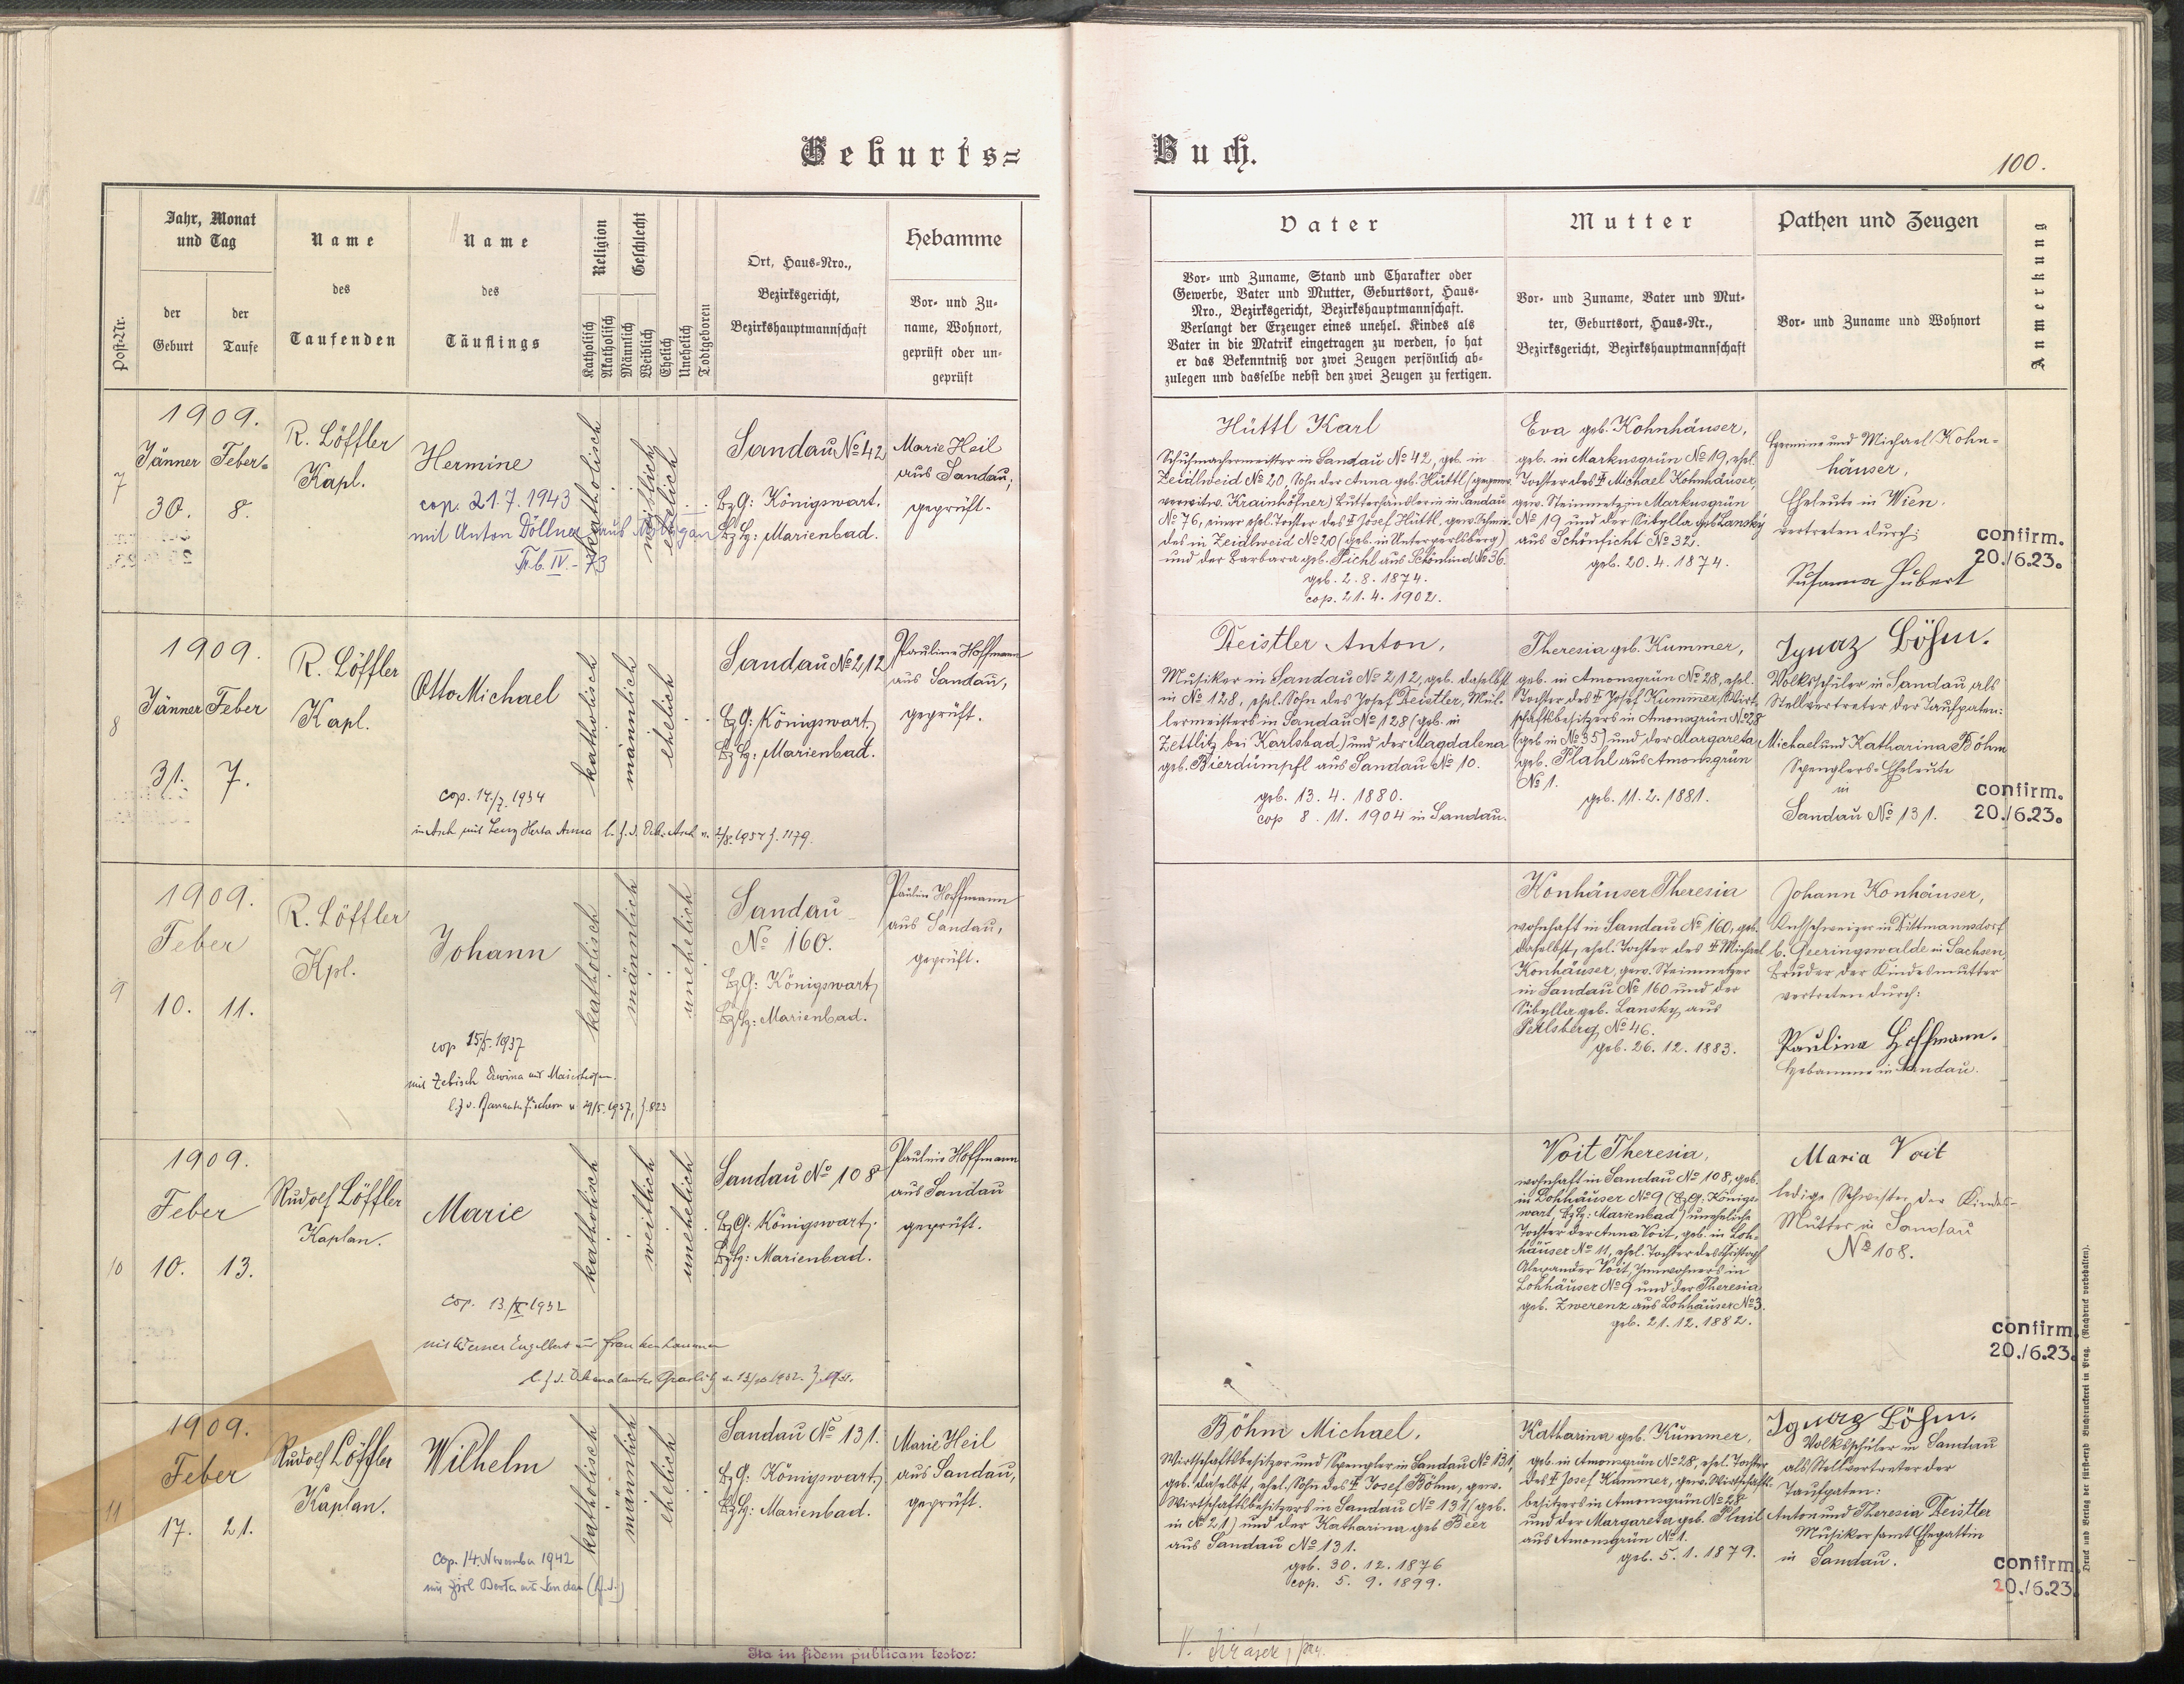 Geburts=
Buch.
100.
Post-Nr.
Jahr, Monat
und Tag
der
Geburt
der
Taufe
Name
des
Taufenden
Name
des
Täuflings
Religion
Katholisch
Akatholisch
Geschlecht
Männlich
Weiblich
Ehelich
Unehelich
Todtgeboren
Ort, Haus-Nro.,
Bezirksgericht,
Bezirkshauptmannschaft
Hebamme
Vor- und Zu-
name, Wohnort,
geprüft oder un-
geprüft
Vater
Vor- und Zuname, Stand und Charakter oder
Gewerbe, Vater und Mutter, Geburtsort, Haus-
Nro., Bezirksgericht, Bezirkshauptmannschaft.
Verlangt der Erzeuger eines unehel. Kindes als
Vater in die Matrik eingetragen zu werden, so hat
er das Bekenntniß vor zwei Zeugen persönlich ab-
zulegen und dasselbe nebst den zwei Zeugen zu fertigen.
Mutter
Vor- und Zuname, Vater und Mut-
ter, Geburtsort, Haus-Nr.,
Bezirksgericht, Bezirkshauptmannschaft
Pathen und Zeugen
Vor- und Zuname und Wohnort
Anmerkung
7
1909.
Jänner Feber
30. 8.
R. Löffler
Kapl.
Hermine
cop. 21.7.1943
mit Anton Döllner aus
Trb. IV. - 73
katholisch
weiblich
ehelich
Sandau No 42
BzG: Königswart.
BzH: Marienbad.
Marie Heil
aus Sandau,
geprüft.
Hüttl Karl
Schuhmachermeister in Sandau No 42, geb. in
Zeidlweid No 20, Sohn der Anna geb. Hüttl (gegenw.
verwitw. Krainhöfner) Butterhändlerin in Sandau
No 76, einer ehel. Tochter des ✝ Josef Hüttl, gew. Schmie-
des in Zeidlweid No 20 (geb. in Unterperlsberg)
und der Barbara geb. Pichl aus Schönlind No 36.
geb. 2. 8. 1874.
cop. 21. 4. 1902.
Eva geb. Kohnhäuser,
geb. in Markusgrün No 19, ehel.
Tochter des ✝ Michael Kohnhäuser,
gew. Steinmetz in Markusgrün
No 19 und der Sibylla geb. Lansky
aus Schönficht No 32.
geb. 20. 4. 1874.
Hermine und Michael Kohn-
häuser,
Eheleute in Wien.
vertreten durch:
Susanna Hubert
confirm.
20./6.23.
8
1909.
Jänner Feber
31. 7.
R. Löffler
Kapl.
Otto Michael
cop. 14./7. 1934
in Asch mit Lenz Herta Anna
katholisch
männlich
ehelich
Sandau No 212
BzG: Königswart,
BzH: Marienbad.
Pauline Hoffmann
aus Sandau,
geprüft.
Deistler Anton,
Musiker in Sandau No 212, geb. daselbst
in No 128, ehel. Sohn des Josef Deistler, Mül-
lermeisters in Sandau No 128 (geb. in
Zettlitz bei Karlsbad) und der Magdalena
geb. Bierdümpfl aus Sandau No 10.
geb. 13. 4. 1880.
cop 8. 11. 1904 in Sandau.
Theresia geb. Kummer,
geb. in Amonsgrün No 28, ehel.
Tochter des ✝ Josef Kummer, Wirt-
schaftsbesitzers in Amonsgrün No 28
(geb in No 35) und der Margareta
geb. Plahl aus Amonsgrün
No 1.
geb. 11. 2. 1881.
Ignaz Böhm.
Volksschüler in Sandau als
Stellvertreter der Taufpaten:
Michael und Katharina Böhm
Spenglers-Eheleute
in
Sandau No 131.
confirm.
20./6.23.
9
1909.
Feber
10. 11.
R. Löffler
Kpl.
Johann
cop 15/5. 1937
mit Zebisch Erwina aus Maiershöfen.
katholisch
männlich
unehelich
Sandau
No 160.
BzG: Königswart,
BzH: Marienbad.
Paulin Hoffmann
aus Sandau,
geprüft.
Konhäuser Theresia
wohnhaft in Sandau No 160, geb.
daselbst, ehel. Tochter des ✝ Michael
Konhäuser, gew. Steinmetzer
in Sandau No 160 und der
Sibylla geb. Lansky, aus
Perlsberg No 46.
geb. 26. 12. 1883.
Johann Konhäuser,
in Dittmannsdorf
b. Geeringswalde in Sachsen,
Bruder der Kindesmutter
vertreten durch:
Paulina Hoffmann.
Hebamme in Sandau.
10
1909.
Feber
10. 13.
Rudolf Löffler
Kaplan.
Marie
cop. 13./X 1932
mit Werner Engelbert aus Frankenhammer
katholisch
weiblich
unehelich
Sandau No 108
BzG: Königswart.
BzH: Marienbad.
Paulnie Hoffmann
aus Sandau
geprüft.
Voit Theresia,
wohnhaft in Sandau No 108, geb.
in Lohhäuser No 9 (BzG: Königs-
wart, BzH: Marienbad) uneheliche
Tochter der Anna Voit, geb. in Loh-
häuser No 11, ehel. Tochter des Christoph
Alexander Voit, Inwohners in
Lohhäuser No 9 und der Theresia
geb. Zwerenz aus Lohhäuser No 3.
geb. 21. 12. 1882.
Maria Voit
ledige Schwester der Kindes-
Mutter in Sandau
No 108.
confirm.
20./6.23.
11
1909.
Feber
17. 21.
Rudolf Löffler
Kaplan.
Wilhelm
Cop. 14. November 1942
mit Zirl Berta aus Sandau (A.S.)
katholisch
männlich
ehelich
Sandau No 131.
BzG: Königswart,
BzH: Marienbad.
Marie Heil
aus Sandau,
geprüft.
Böhm Michael,
Wirtschaftsbesitzer und Spengler in Sandau No 131,
geb. daselbst, ehel. Sohn des ✝ Josef Böhm, gew.
Wirtschaftsbesitzers in Sandau No 131 (geb.
in No 21) und der Katharina geb Beer
aus Sandau No 131.
geb. 30. 12. 1876
cop. 5. 9. 1899.
Katharina geb. Kummer,
geb. in Amonsgrün No 28, ehel. Tochter
des ✝ Josef Kummer, gew. Wirtschafts-
besitzers in Amonsgrün No 28
und der Margareta geb. Plail
aus Amonsgrün No 1.
geb. 5. 1. 1879.
Ignaz Böhm.
Volksschüler in Sandau
als Stellvertreter der
Taufpaten:
Anton und Theresia Deistler
Musiker samt Ehegattin
in Sandau.
confirm.
20./6.23
Druck und Verlag der fürsterzb. Buchdruckerei in Prag. (Nachdruck vorbehalten).
Ita in fidem publicam testor:
V. Jirásek,